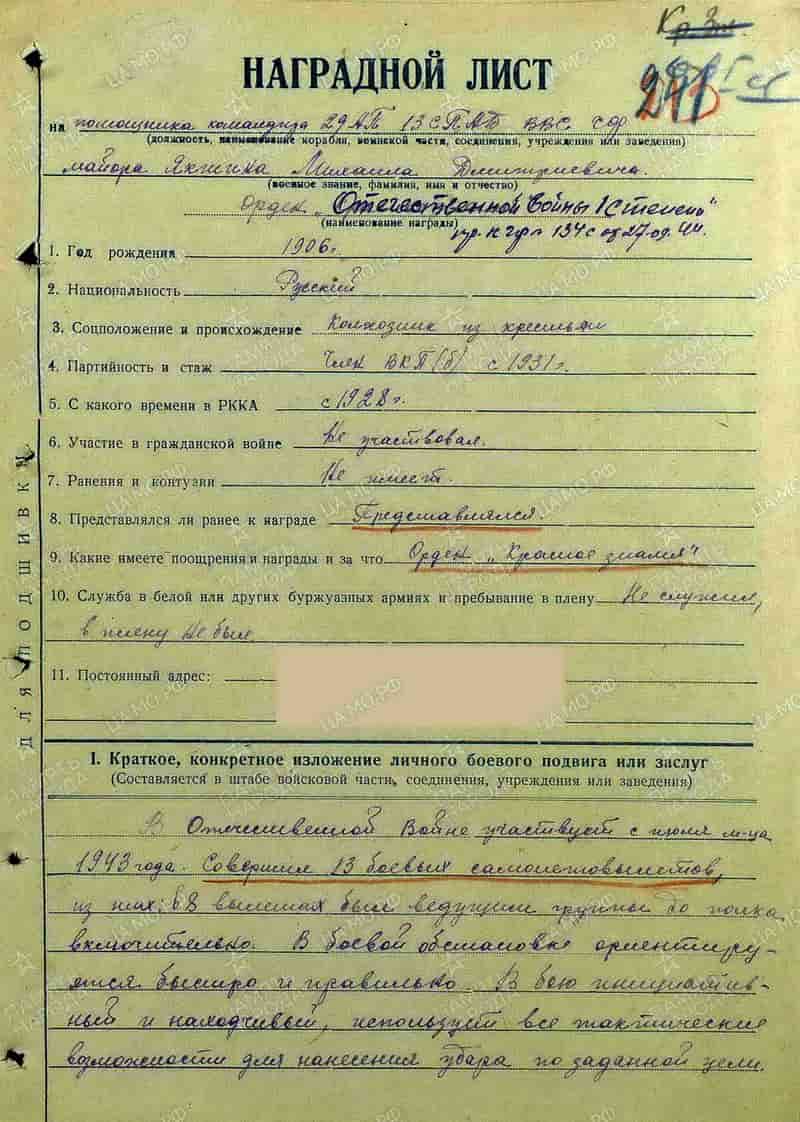 Кр Зн.
НАГРАДНОЙ ЛИСТ
на помощника командира 29 АП 13 СПАБ ВВС СФ
(должность, наименование корабля, воинской части, соединения, учреждения или заведения)
майора Якшина Михаила Дмитриевича.
(военное звание, фамилия, имя и отчество)
Орден „Отечественной Войны 1 степень"
(наименование награды)
пр. КЧФ 134с от 27.09.44г.
1. Год рождения 1906г.
2. Национальность Русский
3. Соцположение и происхождение Колхозник из крестьян
4. Партийность и стаж Член ВКП(б) с 1931г.
5. С какого времени в РККА с 1928г.
6. Участие в гражданской войне Не участвовал.
7. Ранения и контузии Не имеет.
8. Представлялся ли ранее к награде Представлялся.
9. Какие имеете поощрения и награды и за что Орден „Красное знамя"
10. Служба в белой или других буржуазных армиях и пребывание в плену Не служил,
в плену не был.
11. Постоянный адрес:
ДЛЯ ПОДШИВКИ
I. Краткое, конкретное изложение личного боевого подвига или заслуг
(Составляется в штабе войсковой части, соединения, учреждения или заведения)
В Отечественной Войне участвует с июля м-ца
1943 года. Совершил 13 боевых самолетовылетов,
из них: в 8 вылетах был ведущим группы до полка
включительно. В боевой обстановке ориентиру-
ется быстро и правильно. В бою инициатив-
ный и находчивый, использует все тактические
возможности для нанесения удара по заданной цели.